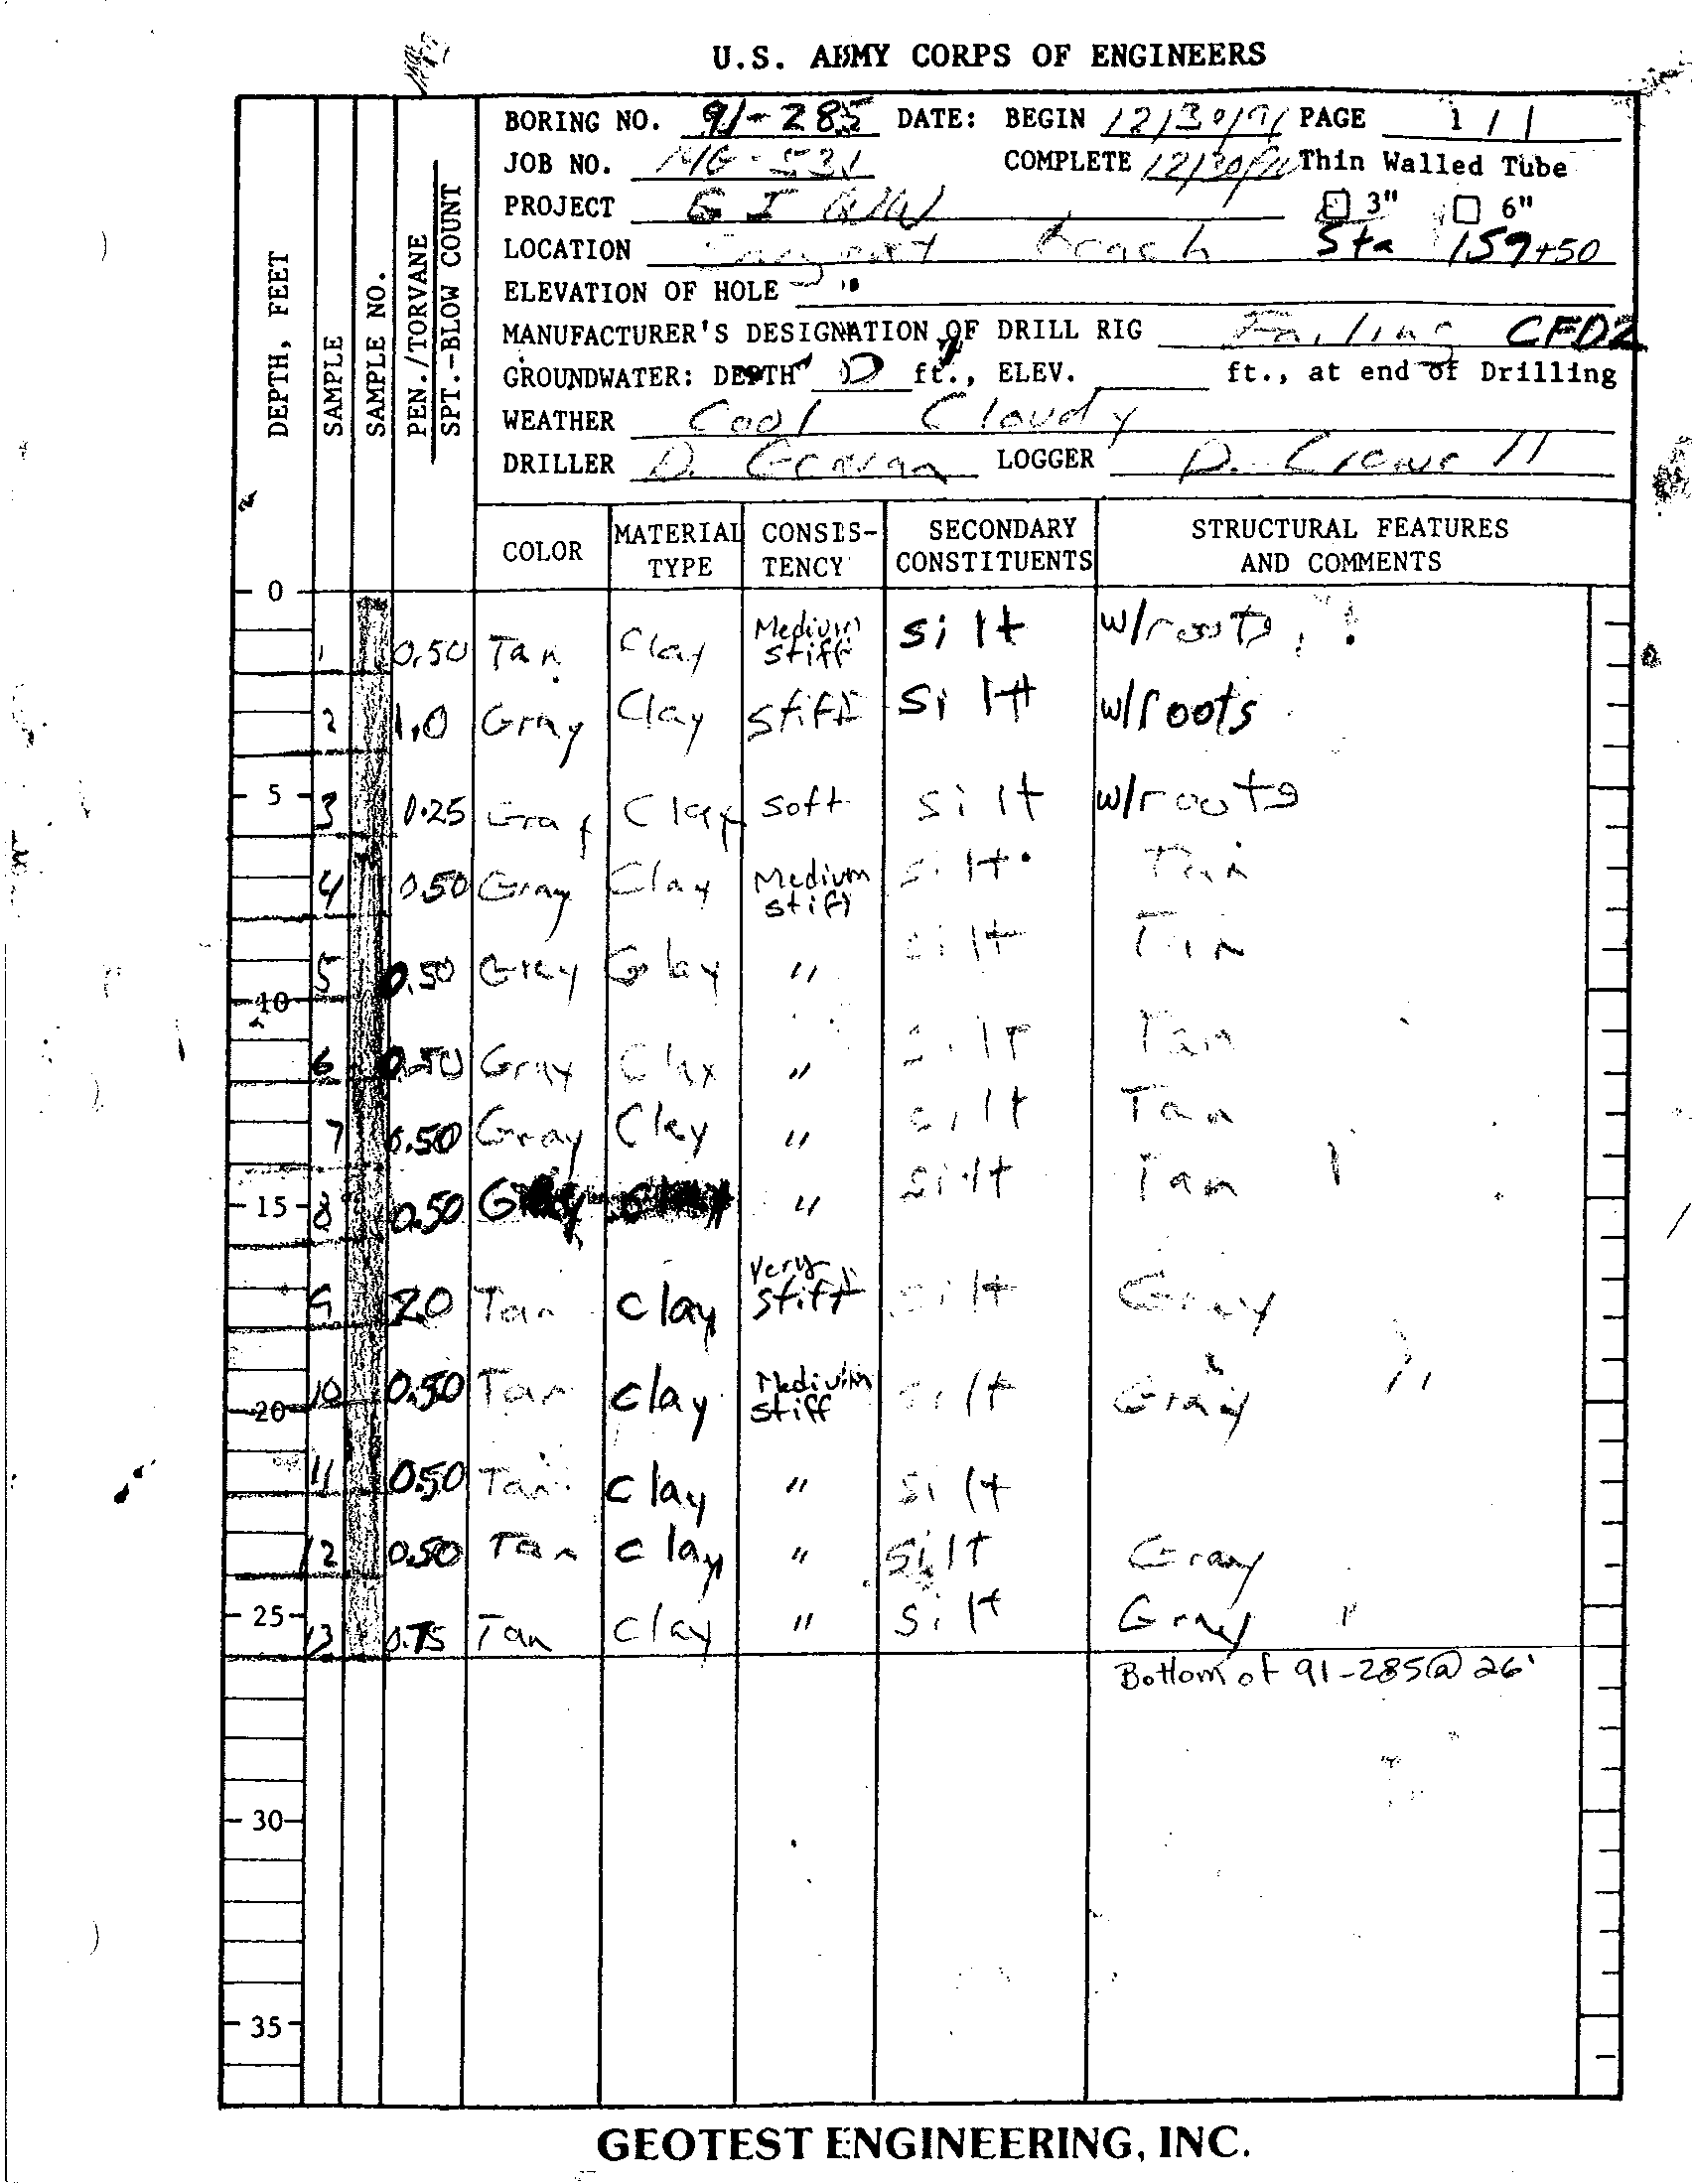 U.S. ARMY CORPS OF ENGINEERS
BORING NO. 91-285 DATE: BEGIN 12/30/91 PAGE 1 / 1
JOB NO. COMPLETE 12/30/91 Thin Walled Tube
PROJECT G I WW 3" 6"
LOCATION Sargent Beach Sta 159+50
ELEVATION OF HOLE
MANUFACTURER'S DESIGNATION OF DRILL RIG Failing CFD2
GROUNDWATER: DEPTH 0 ft., ELEV. ft., at end of Drilling
WEATHER Cool Cloudy
DRILLER D. LOGGER D.
DEPTH, FEET
SAMPLE
SAMPLE NO.
PEN./TORVANE
SPT.-BLOW COUNT
COLOR MATERIAL TYPE CONSIS-TENCY SECONDARY CONSTITUENTS STRUCTURAL FEATURES AND COMMENTS
0
1 0.50 Tan Clay Medium stiff silt w/roots
2 1.0 Gray Clay stiff silt w/roots
5 3 0.25 Gray Clay soft silt w/roots
4 0.50 Gray Clay Medium stiff silt Tan
5 0.50 Gray Clay " silt Tan
10
6 0.50 Gray Clay " silt Tan
7 0.50 Gray Clay " silt Tan
15 8 0.50 Gray Clay " silt Tan
9 2.0 Tan clay Very stiff silt Gray
10 0.50 Tan clay Medium stiff silt Gray
20
11 0.50 Tan clay " silt
12 0.50 Tan clay " silt Gray
25 13 0.75 Tan clay " silt Gray
Bottom of 91-285 @ 26'
30
35
GEOTEST ENGINEERING, INC.